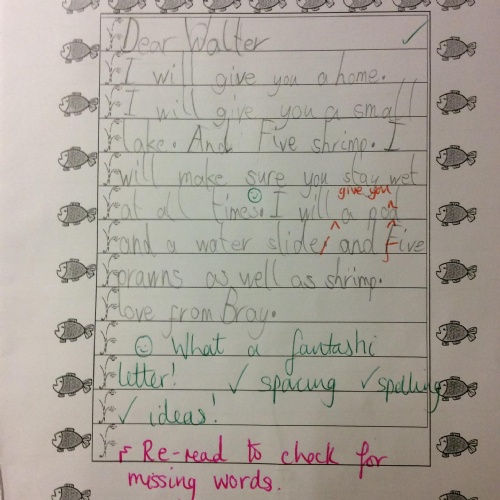 Dear Walter
I will give you a home.
I will give you a small
lake. And Five shrimp. I
will make sure you stay wet
give you
at all times. I will a pod
and a water slide, and five
prawns as well as shrimp.
love from Bray.
What a fantashi
letter! ✓ spacing ✓ spelling
✓ ideas!
Re-read to check for
missing words.